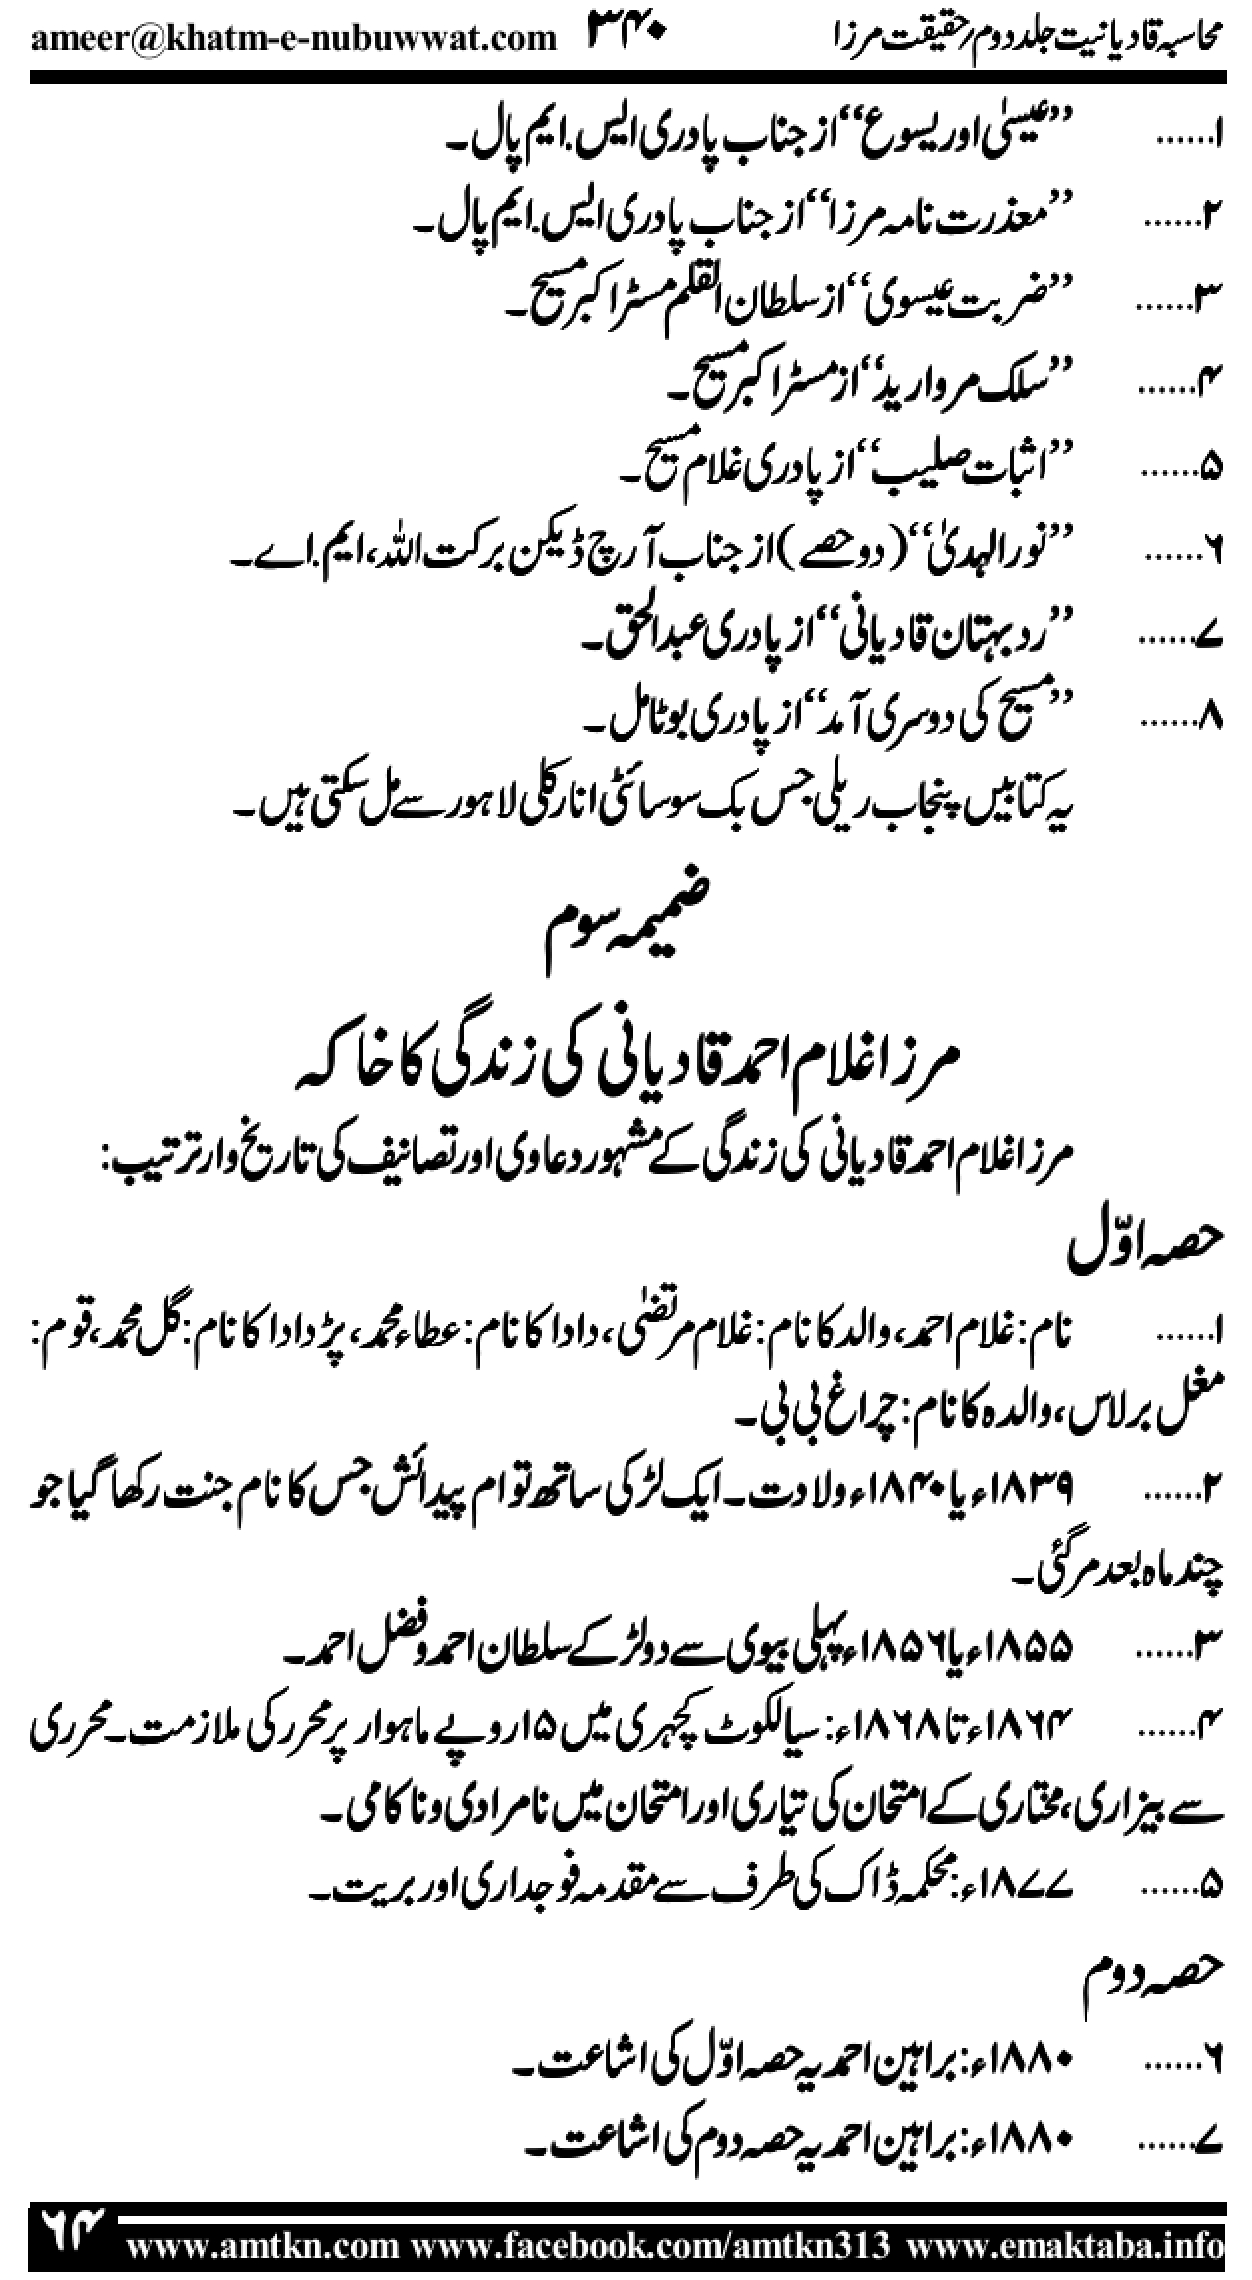 محاسبہ قادیانیت جلد دوم؍ حقیقت مرزا ۳۴۰ ameer@khatm-e-nubuwwat.com
۱...... ’’عیسیٰ اور یسوع‘‘ از جناب پادری ایس.ایم پال۔
۲...... ’’معذرت نامہ مرزا‘‘ از جناب پادری ایس.ایم پال۔
۳...... ’’ضربت عیسوی‘‘ از سلطان القلم مسٹر اکبر مسیح۔
۴...... ’’سلک مروارید‘‘ از مسٹر اکبر مسیح۔
۵...... ’’اثبات صلیب‘‘ از پادری غلام مسیح۔
۶...... ’’نور الہدیٰ‘‘ (دو حصے) از جناب آرچ ڈیکن برکت اللہ، ایم.اے۔
۷...... ’’رد بہتان قادیانی‘‘ از پادری عبدالحق۔
۸...... ’’مسیح کی دوسری آمد‘‘ از پادری بوٹا مل۔
یہ کتابیں پنجاب ریلی جس بک سوسائٹی انارکلی لاہور سے مل سکتی ہیں۔
ضمیمہ سوم
مرزا غلام احمد قادیانی کی زندگی کا خاکہ
مرزا غلام احمد قادیانی کی زندگی کے مشہور دعاوی اور تصانیف کی تاریخ وار ترتیب:
حصہ اوّل
۱...... نام: غلام احمد، والد کا نام: غلام مرتضٰی، دادا کا نام: عطاء محمد، پڑدادا کا نام: گل محمد، قوم:
مغل برلاس، والدہ کا نام: چراغ بی بی۔
۲...... ۱۸۳۹ء یا ۱۸۴۰ء ولادت۔ ایک لڑکی ساتھ توام پیدائش جس کا نام جنت رکھا گیا جو
چند ماہ بعد مر گئی۔
۳...... ۱۸۵۵ء یا ۱۸۵۶ء پہلی بیوی سے دو لڑکے سلطان احمد و فضل احمد۔
۴...... ۱۸۶۴ء تا ۱۸۶۸ء: سیالکوٹ کچہری میں ۱۵ روپے ماہوار پر محرر کی ملازمت۔ محرری
سے بیزاری، مختاری کے امتحان کی تیاری اور امتحان میں نامرادی و ناکامی۔
۵...... ۱۸۷۷ء: محکمہ ڈاک کی طرف سے مقدمہ فوجداری اور بریت۔
حصہ دوم
۶...... ۱۸۸۰ء: براہین احمدیہ حصہ اوّل کی اشاعت۔
۷...... ۱۸۸۰ء: براہین احمدیہ حصہ دوم کی اشاعت۔
۶۴ www.amtkn.com www.facebook.com/amtkn313 www.emaktaba.info